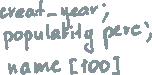 creat_year;
popularity perc;
name [100]